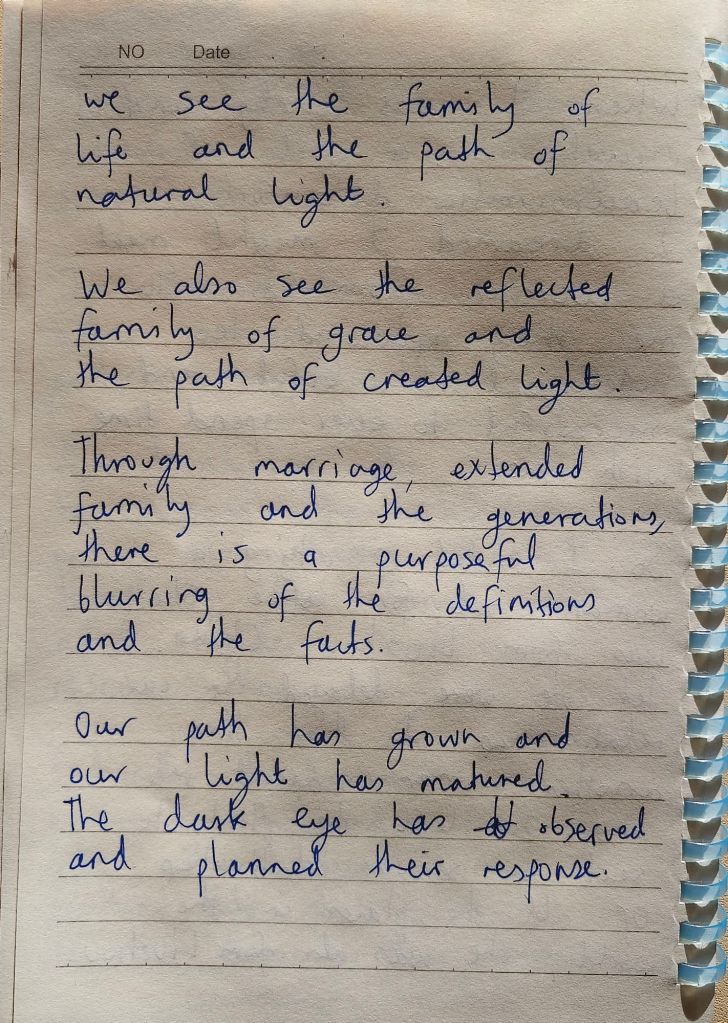 NO Date
we see the family of
life and the path of
natural light.
We also see the reflected
family of grace and
the path of created light.
Through marriage, extended
family and the generations,
there is a purposeful
blurring of the definitions
and the facts.
Our path has grown and
our light has matured.
The dark eye has observed
and planned their response.